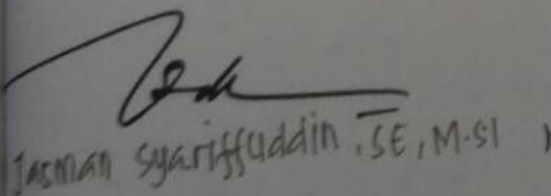 Jasman Syariffuddin, SE, M.SI